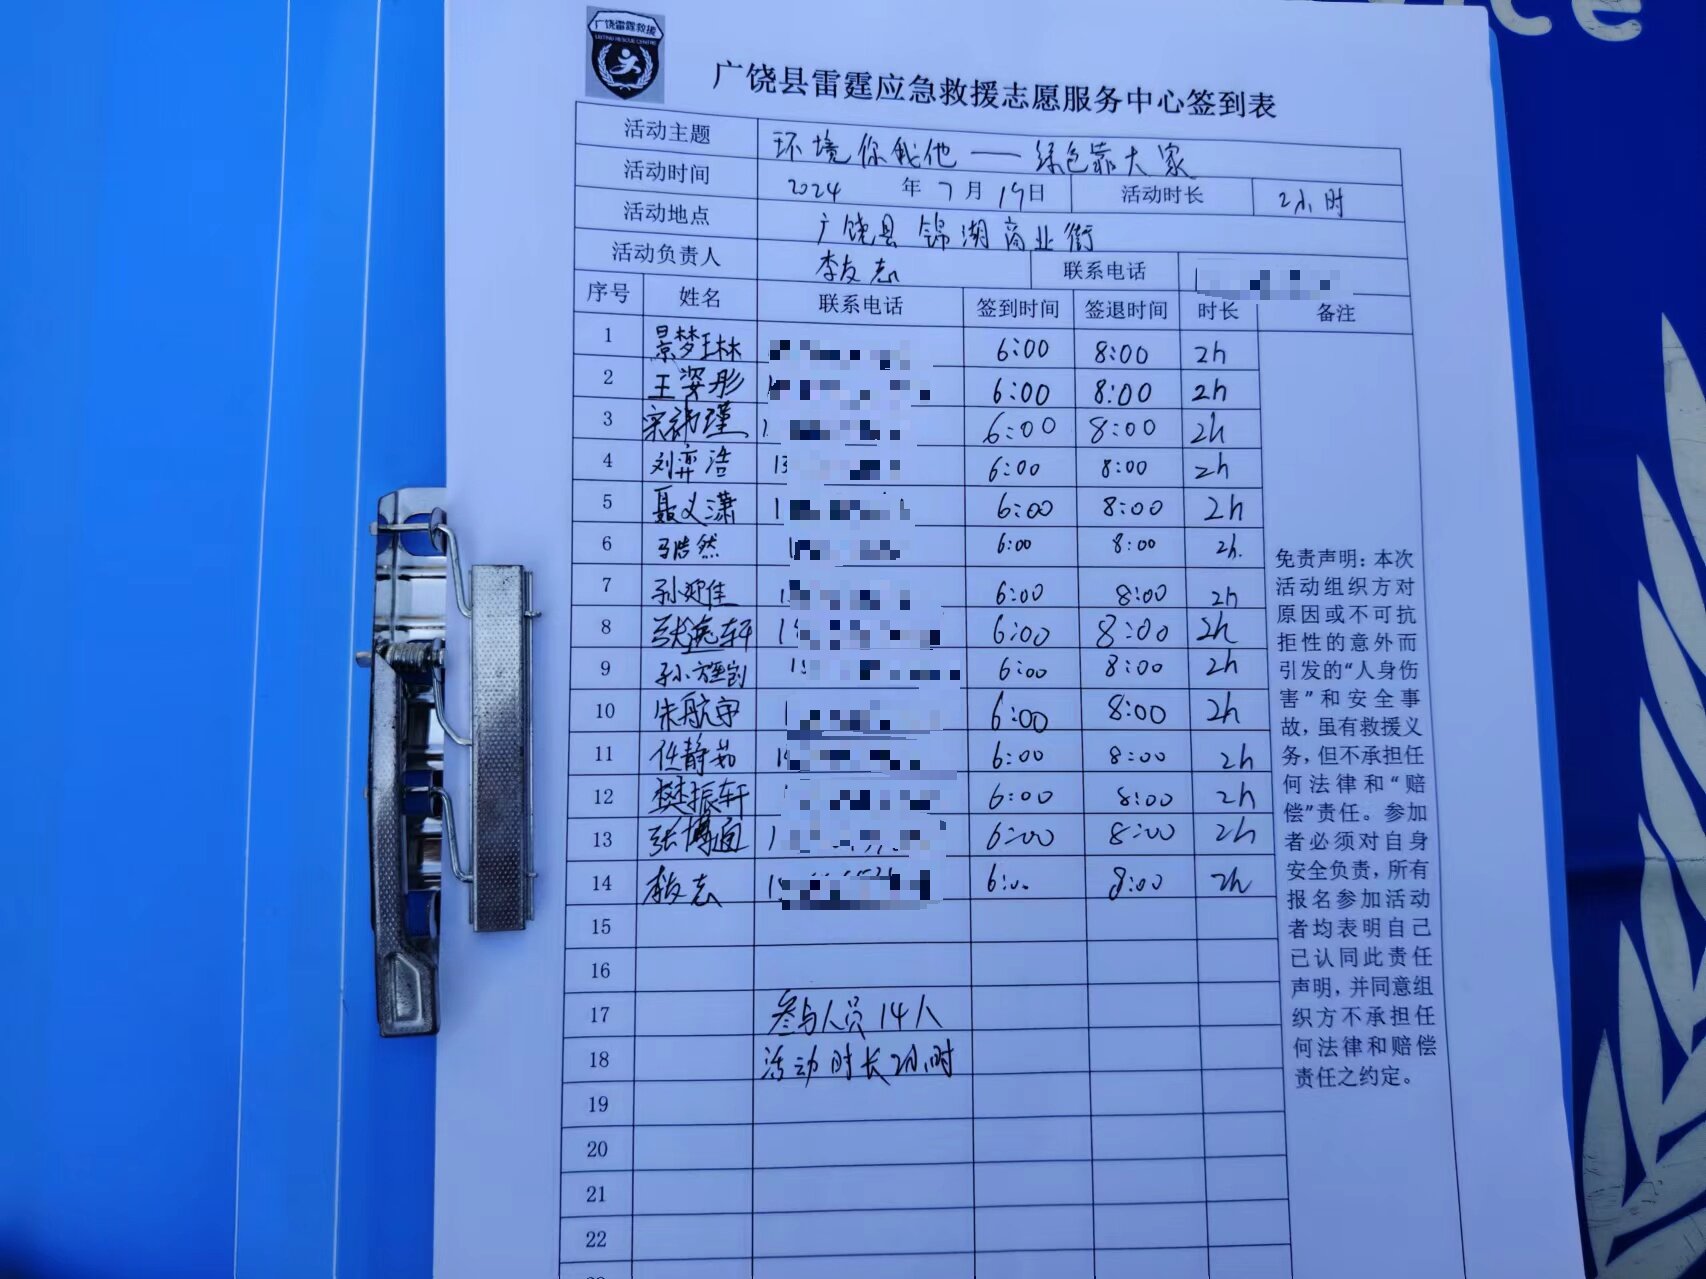 ice
广饶雷霆救援
广饶县雷霆应急救援志愿服务中心签到表
活动主题 环境你我他——绿色靠大家
活动时间 2024 年 7 月 19 日 活动时长 2小时
活动地点 广饶县 锦湖商业街
活动负责人 李友志 联系电话
序号 姓名 联系电话 签到时间 签退时间 时长 备注
1 景梦琳 6:00 8:00 2h
2 王姿彤 6:00 8:00 2h
3 宋祎瑾 6:00 8:00 2h
4 刘弈浩 13 6:00 8:00 2h
5 聂义潇 1 6:00 8:00 2h
6 浩然 1 6:00 8:00 2h.
7 孙迎佳 1 6:00 8:00 2h
8 张逸轩 1 6:00 8:00 2h
9 孙 15 6:00 8:00 2h
10 朱航宇 1 6:00 8:00 2h
11 任静茹 1 6:00 8:00 2h
12 樊振轩 6:00 8:00 2h
13 张博通 1 6:00 8:00 2h
14 李友志 1 6:00 8:00 2h
15
16
17 参与人员14人
18 活动时长2小时
19
20
21
22
免责声明：本次
活动组织方对
原因或不可抗
拒性的意外而
引发的“人身伤
害”和安全事
故，虽有救援义
务，但不承担任
何法律和“赔
偿”责任。参加
者必须对自身
安全负责，所有
报名参加活动
者均表明自己
已认同此责任
声明，并同意组
织方不承担任
何法律和赔偿
责任之约定。